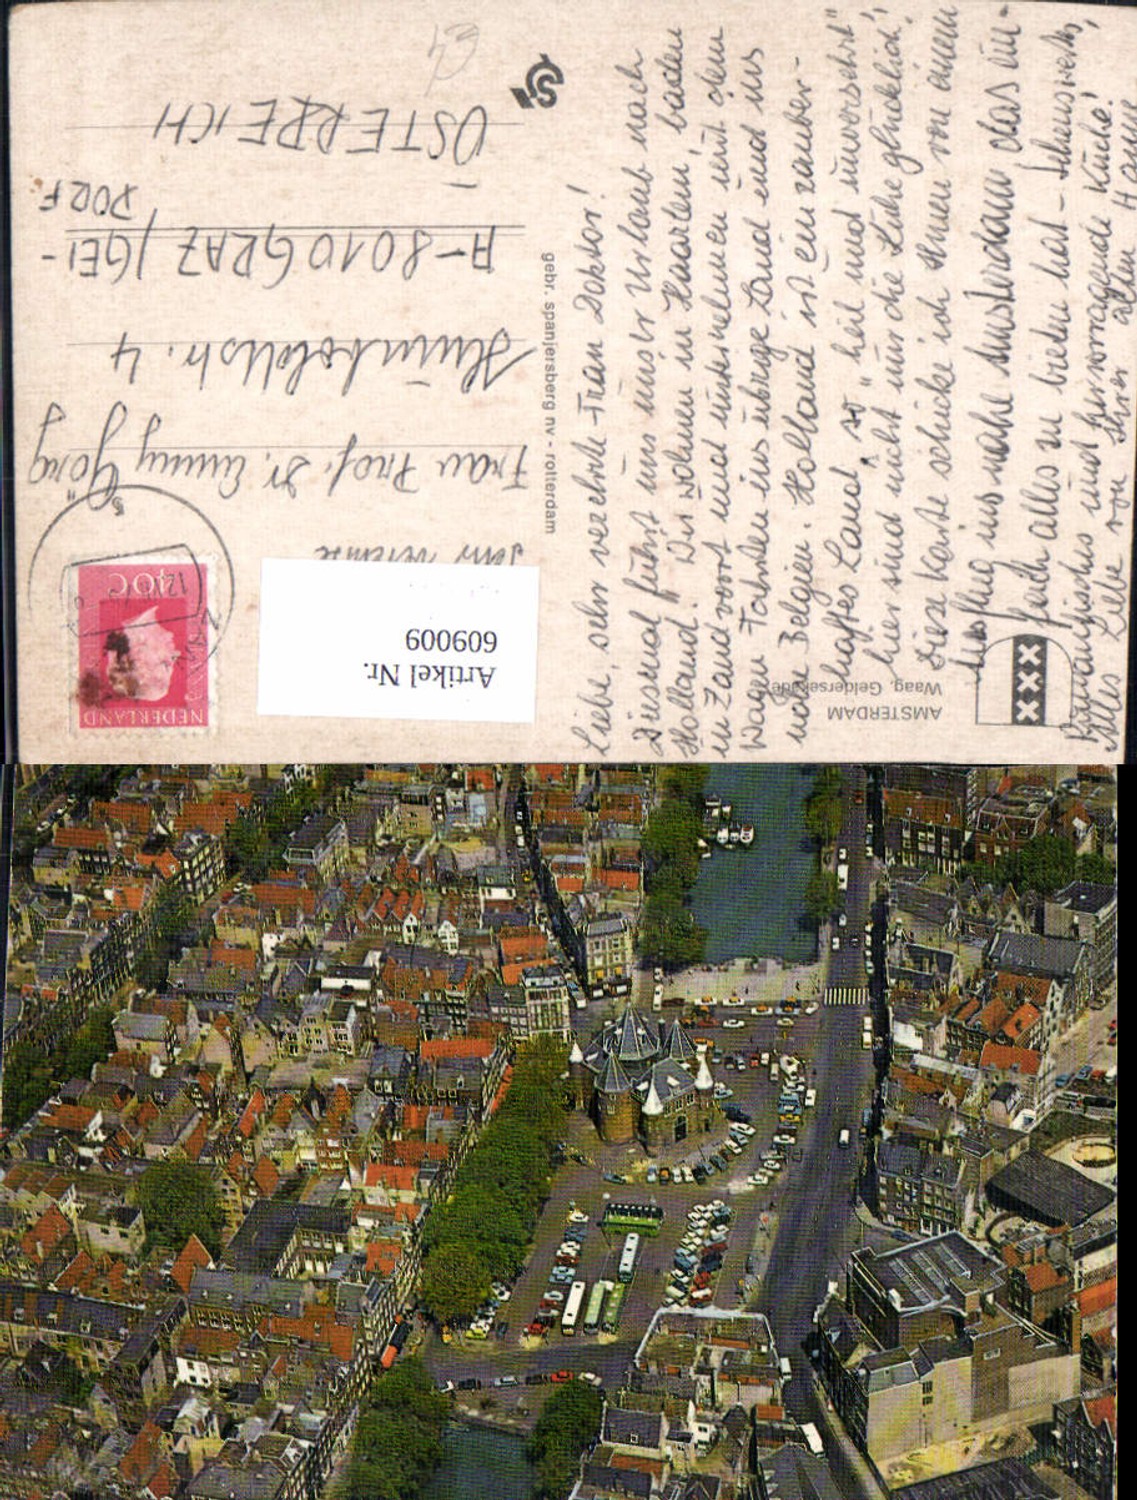 AMSTERDAM
Waag, Geldersekade
Artikel Nr.
609009
NEDERLAND
40C
gebr. spanjersberg nv - rotterdam
Frau Prof. Dr. Emmy Göng
Humboldtstr. 4
A-8010 GRAZ/GEI-
DORF
ÖSTERREICH
Liebe, sehr verehrte Frau Doktor!
Diesmal führt uns unser Urlaub nach
Holland. Wir wohnen in Haarlem, baden
in Zandvoort und unternehmen mit dem
Wagen Fahrten ins übrige Land und ins
nahe Belgien. Holland ist ein zauber-
haftes Land, so "heil und unversehrt"
hier sind nicht nur die Kühe glücklich!
Diese Karte schicke ich Ihnen von einem
Ausflug ins nahe Amsterdam das ein-
fach alles zu bieten hat - Sehenswertes,
und hervorragende Küche!
Alles Liebe von Ihrer alten